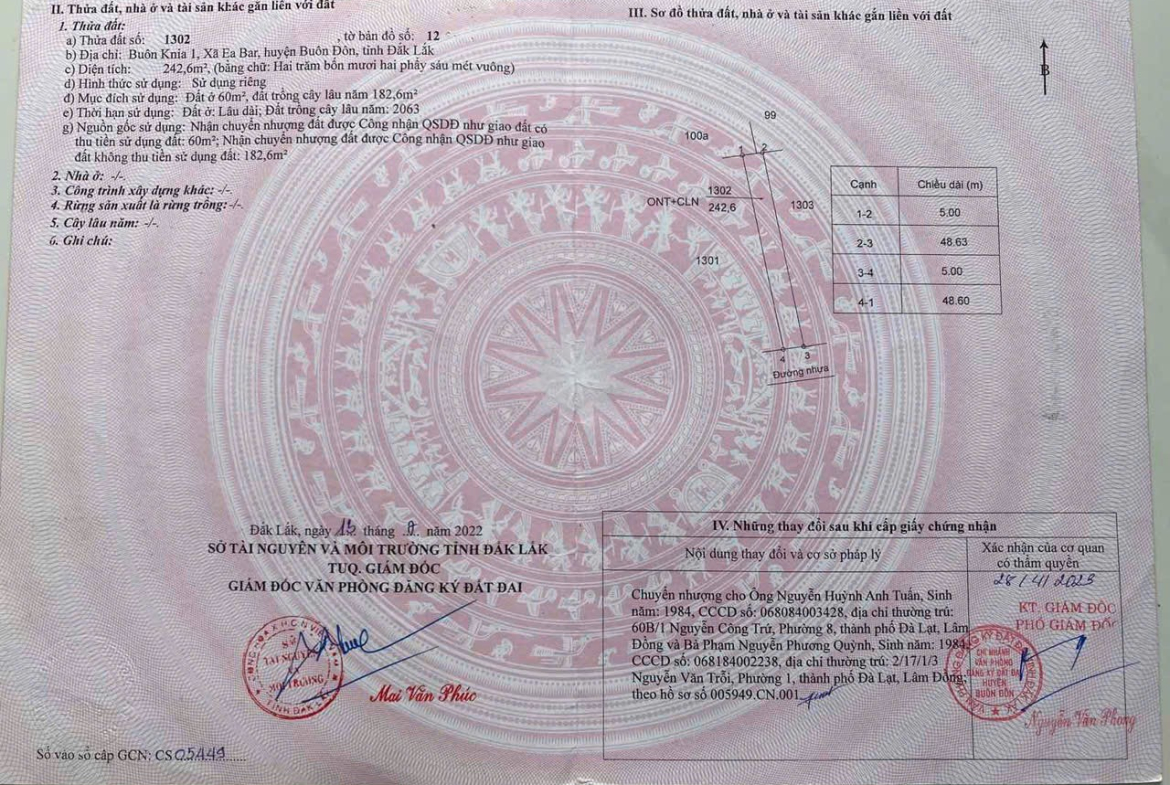 II. Thửa đất, nhà ở và tài sản khác gắn liền với đất
1. Thửa đất:
a) Thửa đất số: 1302 , tờ bản đồ số: 12
b) Địa chỉ: Buôn Knia 1, Xã Ea Bar, huyện Buôn Đôn, tỉnh Đắk Lắk
c) Diện tích: 242,6m², (bằng chữ: Hai trăm bốn mươi hai phẩy sáu mét vuông)
d) Hình thức sử dụng: Sử dụng riêng
đ) Mục đích sử dụng: Đất ở 60m², đất trồng cây lâu năm 182,6m²
e) Thời hạn sử dụng: Đất ở: Lâu dài; Đất trồng cây lâu năm: 2063
g) Nguồn gốc sử dụng: Nhận chuyển nhượng đất được Công nhận QSDĐ như giao đất có
thu tiền sử dụng đất: 60m²; Nhận chuyển nhượng đất được Công nhận QSDĐ như giao
đất không thu tiền sử dụng đất: 182,6m²
2. Nhà ở: -/-.
3. Công trình xây dựng khác: -/-.
4. Rừng sản xuất là rừng trồng: -/-.
5. Cây lâu năm: -/-.
6. Ghi chú:
III. Sơ đồ thửa đất, nhà ở và tài sản khác gắn liền với đất
B
99
100a
1 2
ONT+CLN 1302
242,6
1303
1301
4 3
Đường nhựa
Cạnh Chiều dài (m)
1-2 5.00
2-3 48.63
3-4 5.00
4-1 48.60
Đăk Lắk, ngày 13 tháng 9 năm 2022
SỞ TÀI NGUYÊN VÀ MÔI TRƯỜNG TỈNH ĐẮK LẮK
TUQ. GIÁM ĐỐC
GIÁM ĐỐC VĂN PHÒNG ĐĂNG KÝ ĐẤT ĐAI
SỞ
TÀI NGUYÊN
MÔI TRƯỜNG
TỈNH ĐẮK LẮK
Mai Văn Phúc
Số vào sổ cấp GCN: CS 05449
IV. Những thay đổi sau khi cấp giấy chứng nhận
Nội dung thay đổi và cơ sở pháp lý
Xác nhận của cơ quan
có thẩm quyền
Chuyển nhượng cho Ông Nguyễn Huỳnh Anh Tuấn, Sinh
năm: 1984, CCCD số: 068084003428, địa chỉ thường trú:
60B/1 Nguyễn Công Trứ, Phường 8, thành phố Đà Lạt, Lâm
Đồng và Bà Phạm Nguyễn Phương Quỳnh, Sinh năm: 1984,
CCCD số: 068184002238, địa chỉ thường trú: 2/17/1/3
Nguyễn Văn Trỗi, Phường 1, thành phố Đà Lạt, Lâm Đồng;
theo hồ sơ số 005949.CN.001
28/4/2023
KT. GIÁM ĐỐC
PHÓ GIÁM ĐỐC
CHI NHÁNH
VĂN PHÒNG
ĐĂNG KÝ ĐẤT ĐAI
HUYỆN
BUÔN ĐÔN
Nguyễn Văn Phong